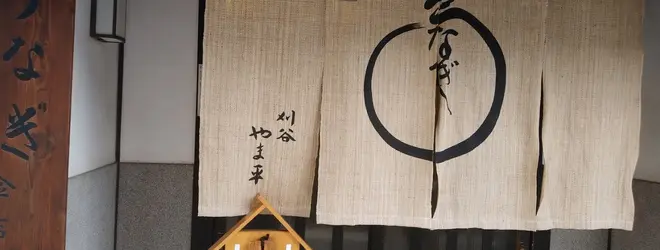 うなぎ
うなぎ
刈谷
やま平